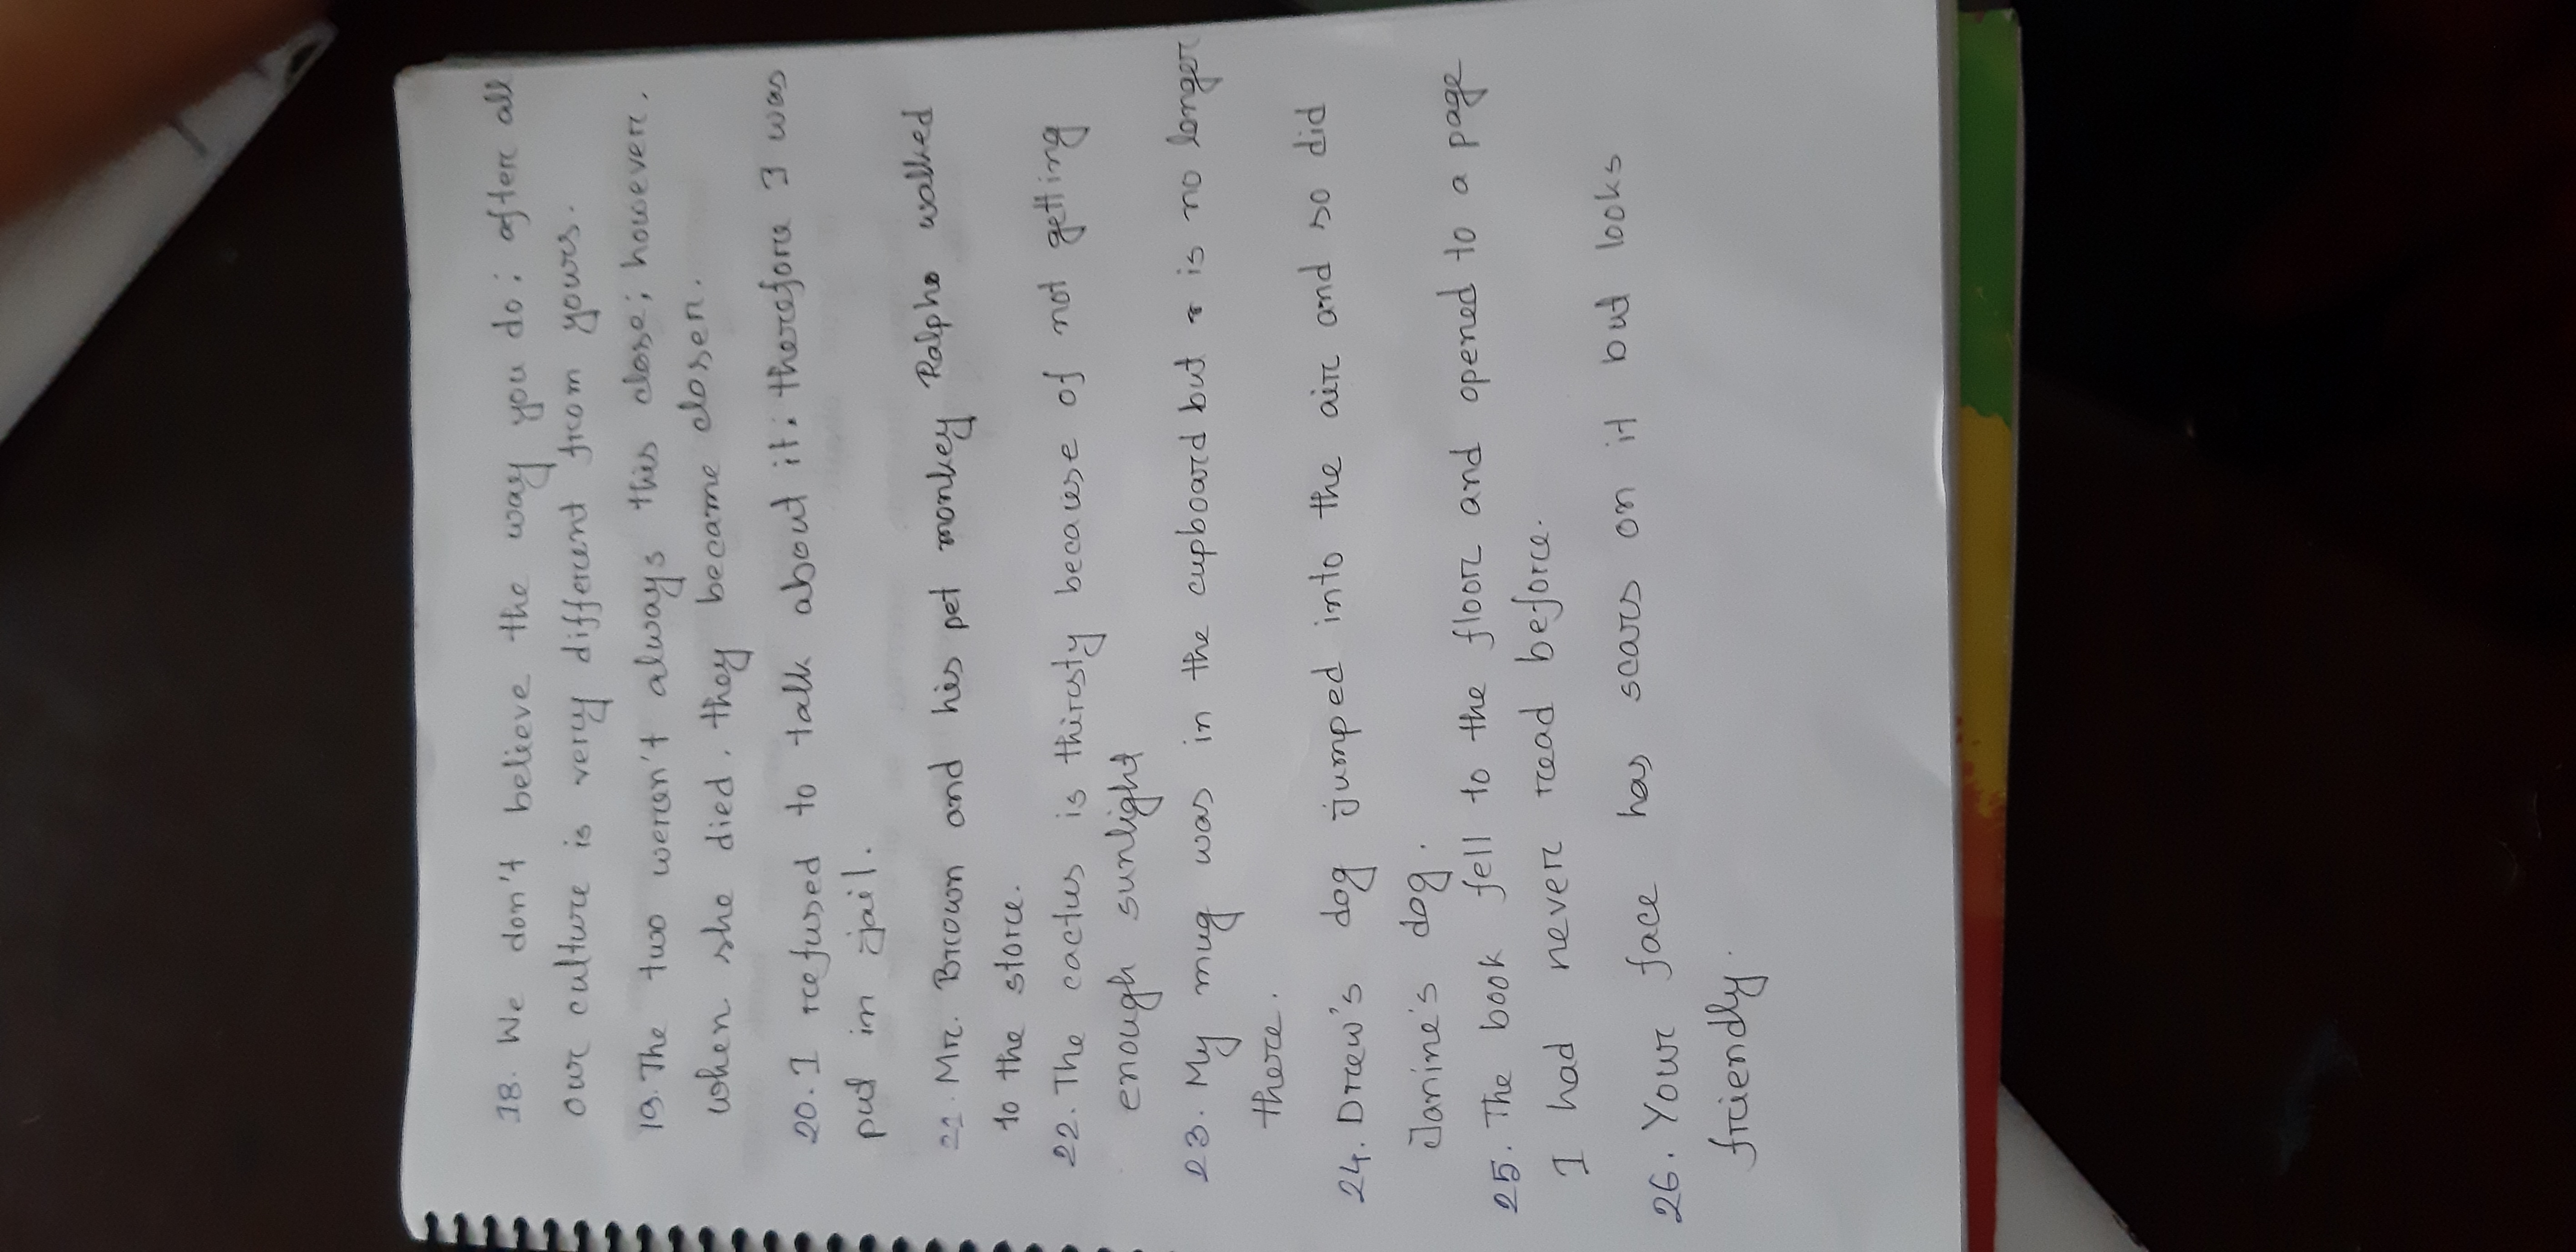 18. We don't believe the way you do; after all
our culture is very different from yours.
19. The two weren't always this close; however,
when she died, they became closer.
20. I refused to talk about it; therefore I was
put in jail.
21. Mr. Brown and his pet monkey Ralpho walked
to the store.
22. The cactus is thirsty because of not getting
enough sunlight
23. My mug was in the cupboard but is no longer
there.
24. Drew's dog jumped into the air and so did
Janine's dog.
25. The book fell to the floor and opened to a page
I had never read before.
26. Your face has scars on it but looks
friendly.